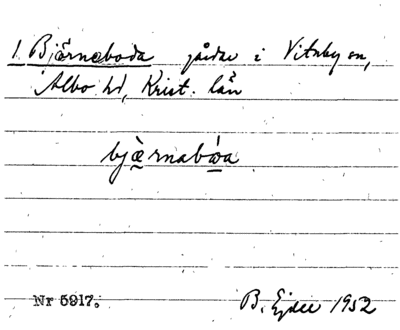 1. Björnaboda gårdar i Vitaby sn,
Albo hd, Krist. län
Nr 5917.
B. Ejder 1952